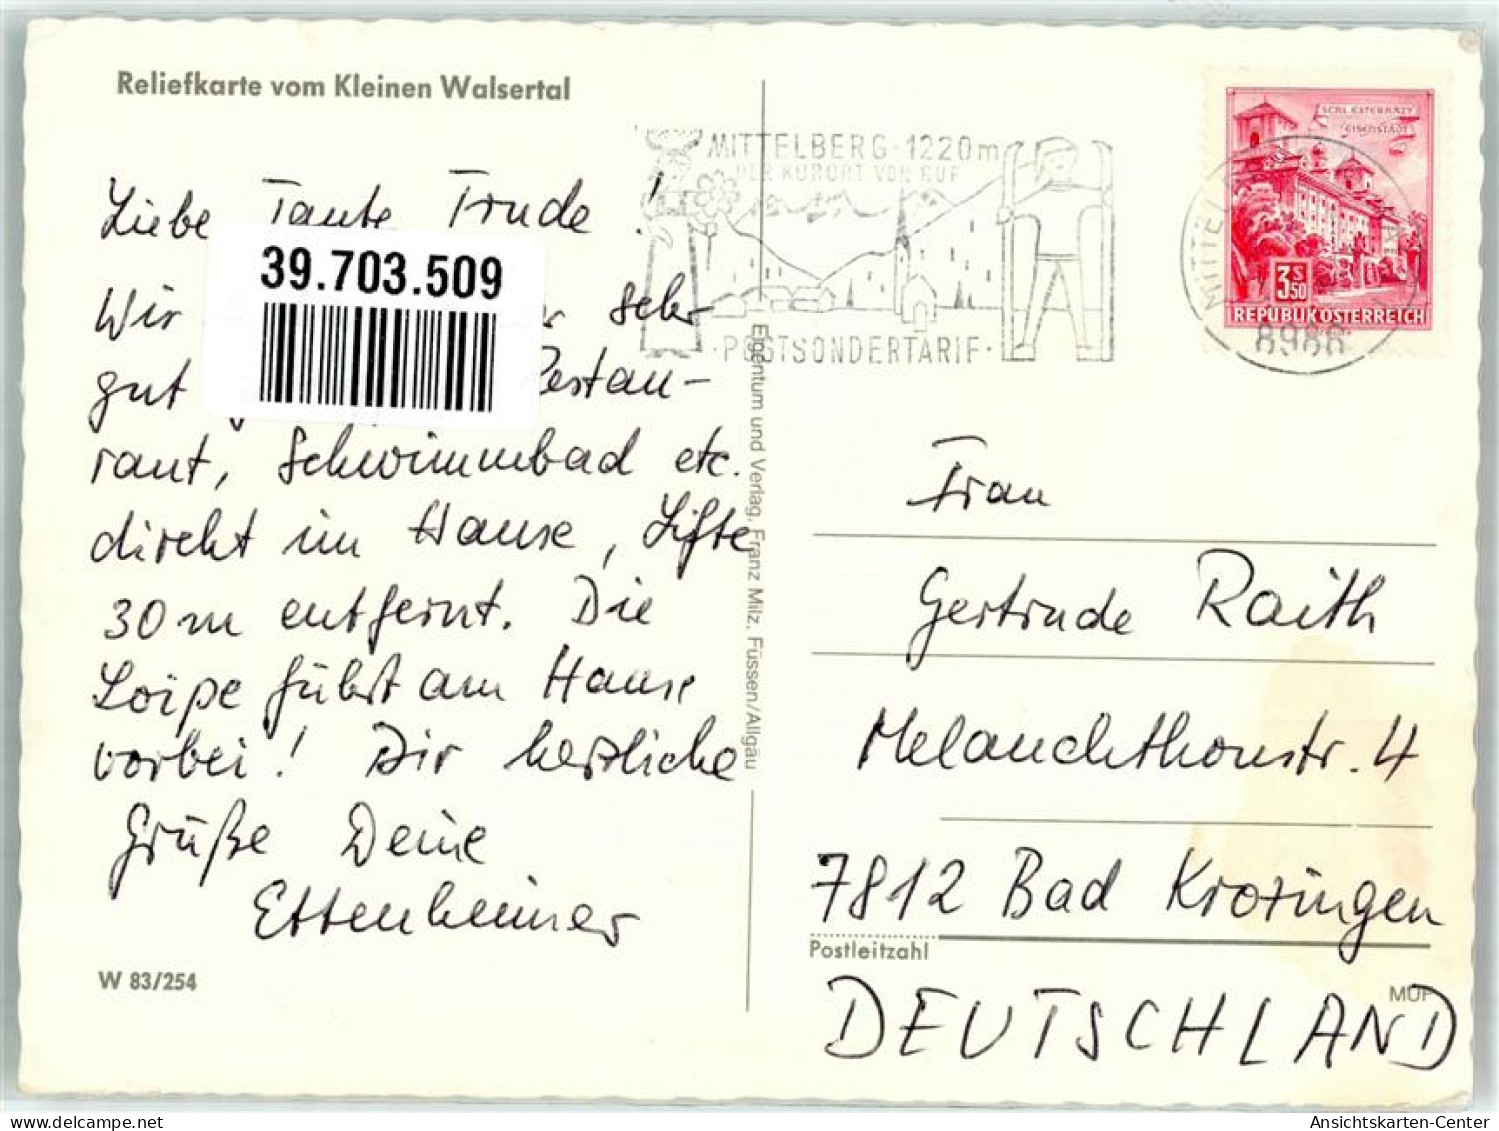 Reliefkarte vom Kleinen Walsertal
Liebe Tante Trude !
39.703.509
Wir sehr
gut Restau-
rant, Schwimmbad etc.
direkt im Hause, Lifte
30 m entfernt. Die
Loipe führt am Hause
vorbei! Dir herzliche
Grüße Deine
Ettenheimer
W 83/254
Eigentum und Verlag, Franz Milz, Füssen/Allgäu
MITTELBERG · 1220m
DER KURORT VON RUF
· POSTSONDERTARIF ·
SCHL. ESTERHAZY
EISENSTADT
3 S 50
REPUBLIK ÖSTERREICH
8986
Frau
Gertrude Raith
Melanchthonstr. 4
7812 Bad Krozingen
Postleitzahl
DEUTSCHLAND
MÜF
Ansichtskarten-Center